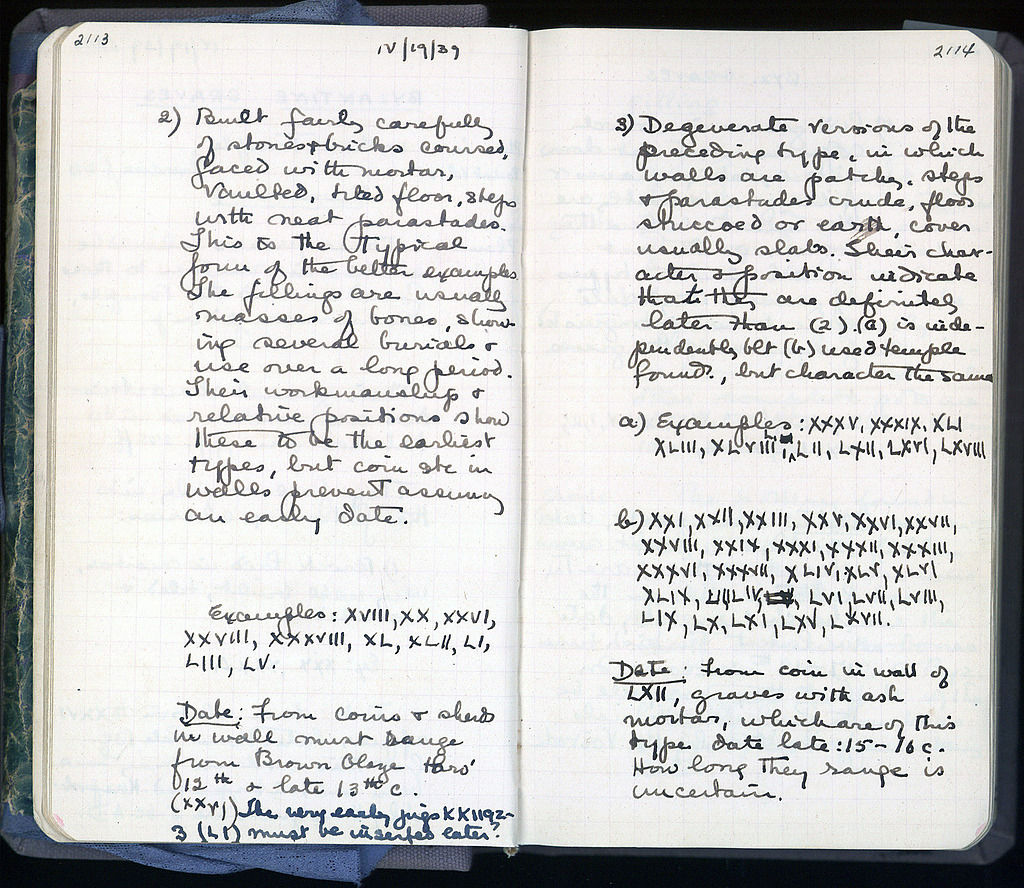 2113
IV/19/39
2) Built fairly carefully
of stones & bricks coursed,
faced with mortar,
vaulted, tiled floor, steps
with neat parastades.
This is the typical
form of the better examples
The fillings are usually
masses of bones, show-
ing several burials &
use over a long period.
Their workmanship &
relative positions show
these to be the earliest
types, but coin etc in
walls prevent assuming
an early date.
Examples: XVIII, XX, XXVI,
XXVIII, XXXVIII, XL, XLII, LI,
LIII, LV.
Date: From coins & sherds
in wall must range
from Brown Glaze thro'
12th & late 13th c.
(XXVI) The very early jugs KK1192-
3 (LI) must be inserted later?
2114
3) Degenerate versions of the
preceding type, in which
walls are patchy, steps
& parastades crude, floor
stuccoed or earth, cover
usually slabs. Their char-
acter & position indicate
that they are definitely
later than (2). (a) is inde-
pendently blt (b) used temple
found., but character the same
a) Examples: XXXV, XXXIX, XLI
XLIII, XLVIII, LII, LXII, LXVI, LXVIII
b) XXI, XXII, XXIII, XXV, XXVI, XXVII,
XXVIII, XXIX, XXXI, XXXII, XXXIII,
XXXVI, XXXVII, XLIV, XLV, XLVI
XLIX, LIV, LVI, LVII, LVIII,
LIX, LX, LXI, LXV, LXVII.
Date: From coin in wall of
LXII, graves with ash
mortar, which are of this
type date late: 15-16 c.
How long they range is
uncertain.